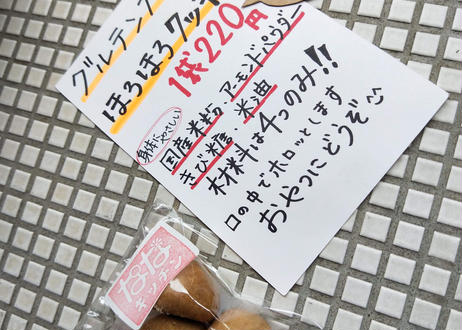 グルテンフ
ほろほろクッキ
1袋220円
身体にやさしい
国産米粉、アーモンドパウダー
きび糖、米油
材料は4つのみ!!
口の中でホロッとします
おやつにどうぞ
なな
キッチン